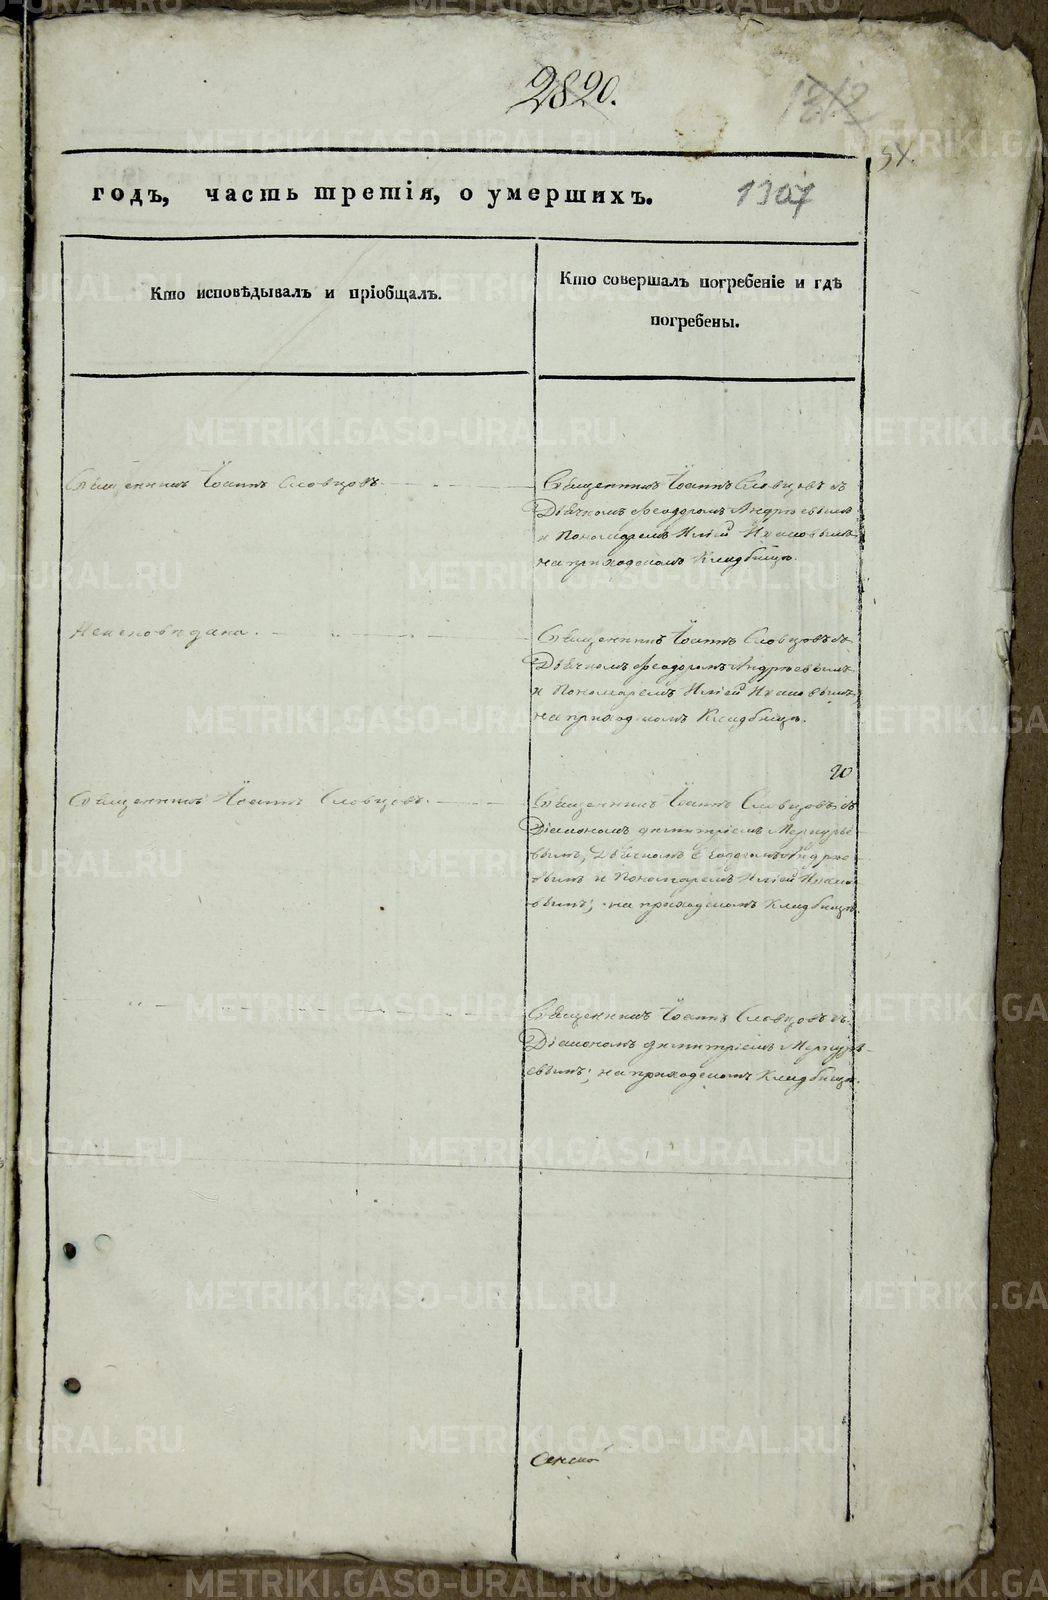 2820.
1312
54.
годъ, часть третія, о умершихъ. 1307
Кто исповѣдывалъ и пріобщалъ.
Кто совершалъ погребеніе и гдѣ
погребены.
Священникъ Іоаннъ Словцовъ.
Священникъ Іоаннъ Словцовъ съ
Дьячкомъ Феодоромъ Андреевымъ
и Пономаремъ Иліей
на приходскомъ Кладбищѣ.
Неисповѣдана.
Священникъ Іоаннъ Словцовъ съ
Дьячкомъ Феодоромъ Андреевымъ
и Пономаремъ Иліей
на приходскомъ Кладбищѣ.
20
Священникъ Іоаннъ Словцовъ.
Священникъ Іоаннъ Словцовъ съ
Діакономъ Димитріемъ Меркурье-
вымъ, Дьячкомъ Феодоромъ Андрее-
вымъ и Пономаремъ Иліей
вымъ; на приходскомъ Кладбищѣ.
Священникъ Іоаннъ Словцовъ съ
Діакономъ Димитріемъ Меркурь-
евымъ; на приходскомъ Кладбищѣ.
METRIKI.GASO-URAL.RU